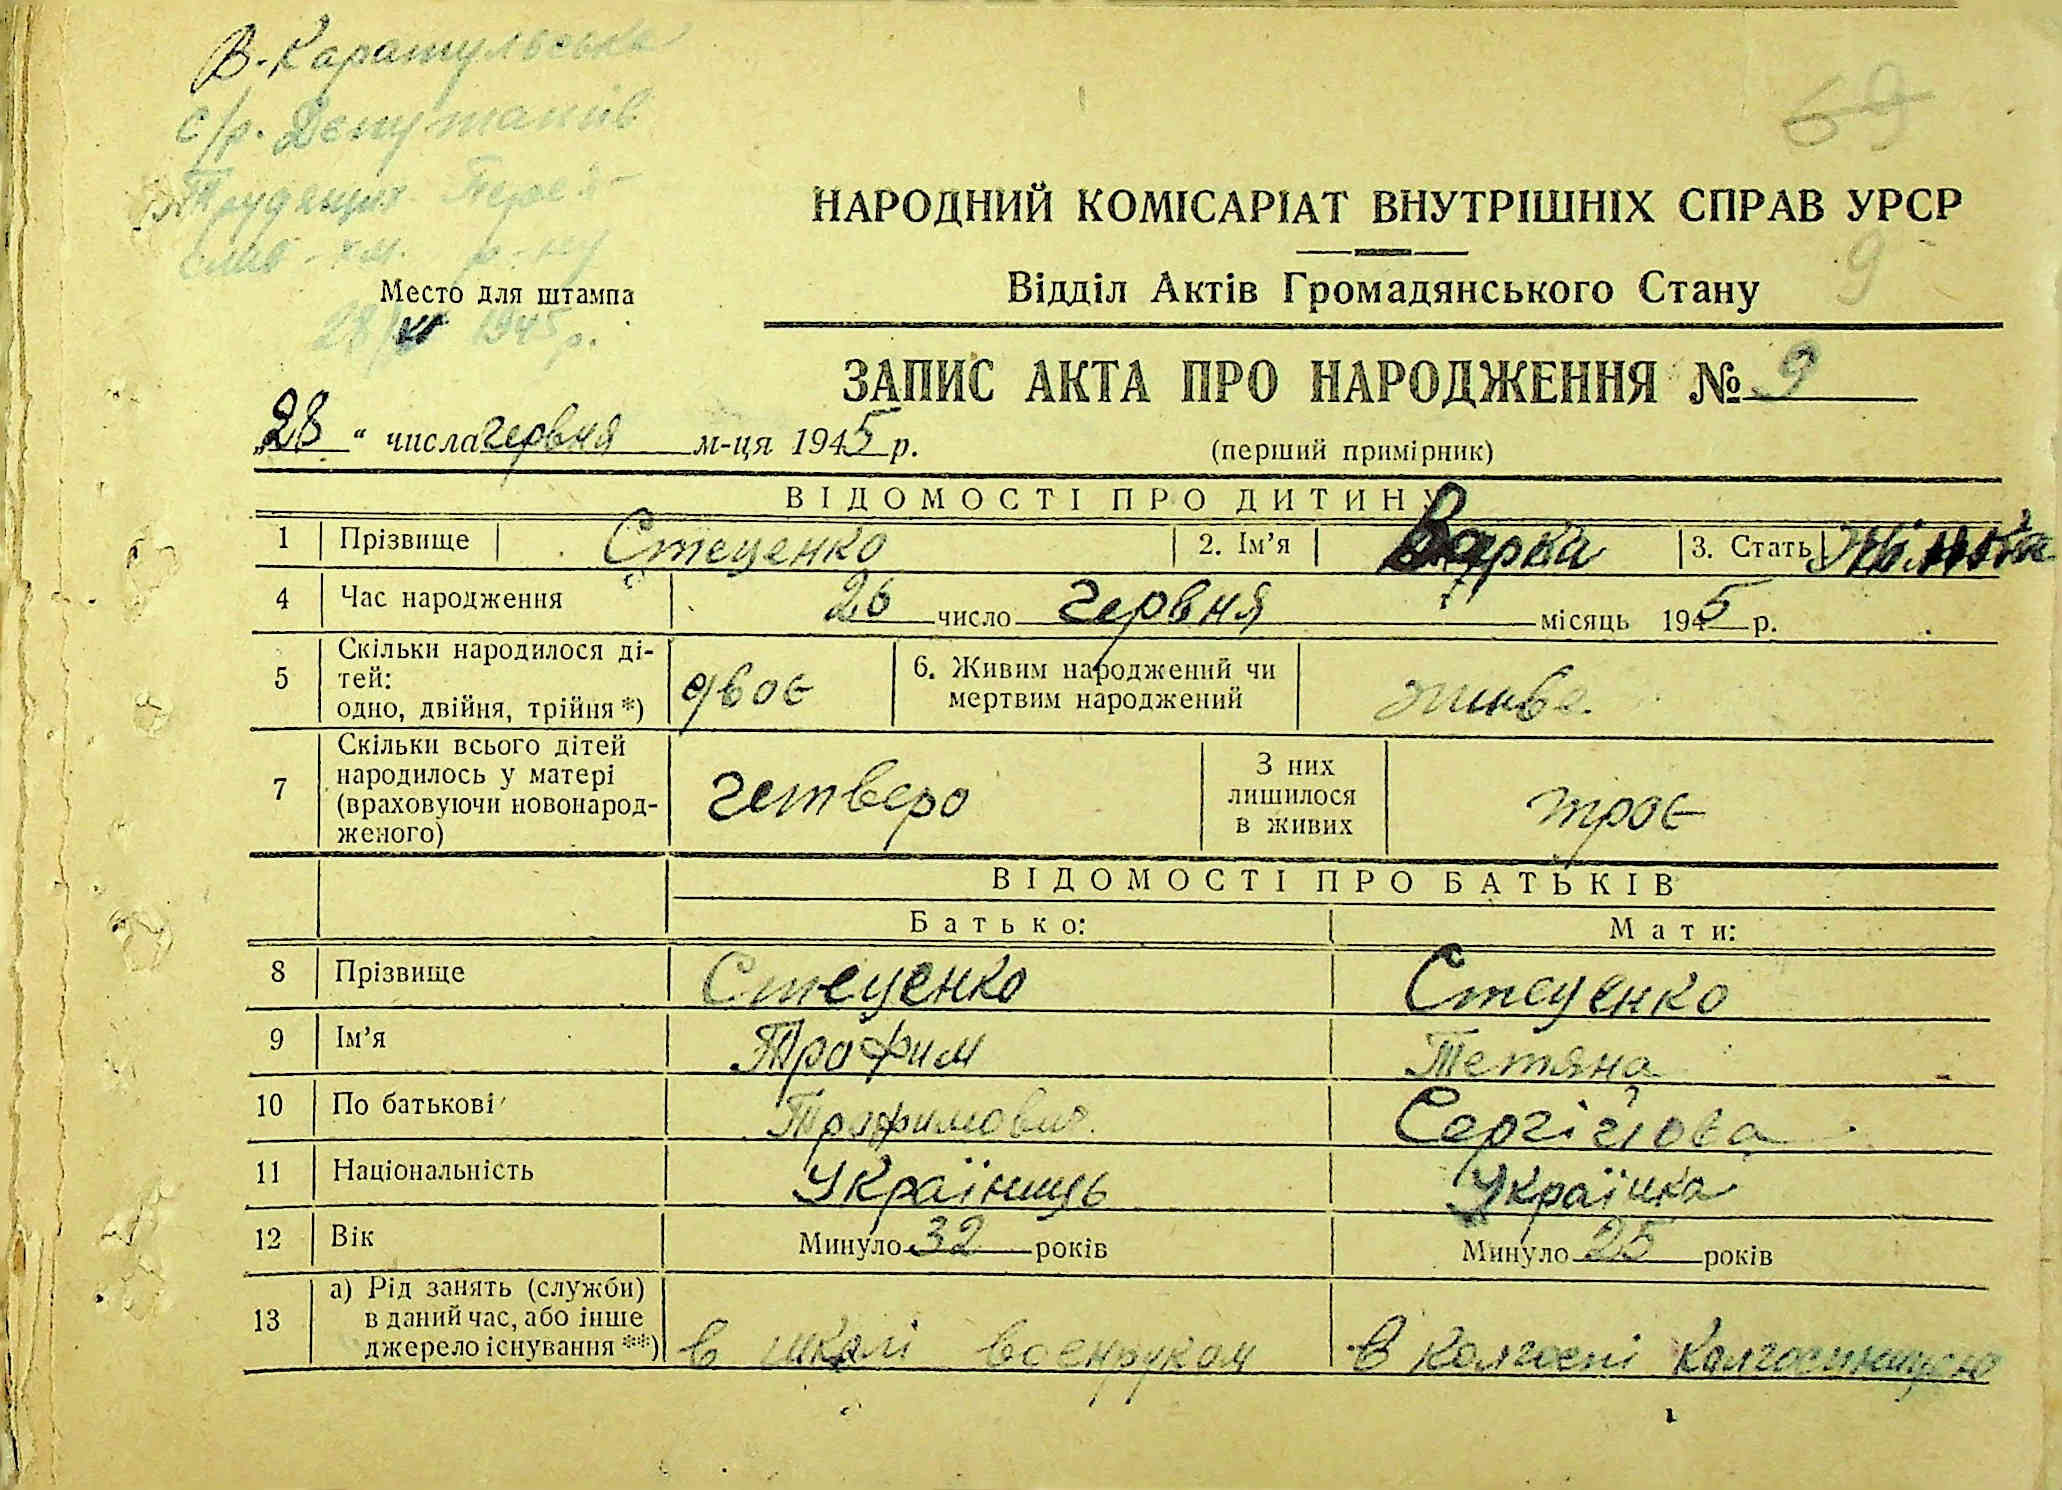 В. Каратульська
с/р. Депутатів
Трудящих. Перея-
слав-хм. р-ну
Место для штампа
28/VI 1945 р.
69
НАРОДНИЙ КОМІСАРІАТ ВНУТРІШНІХ СПРАВ УРСР
9
Відділ Актів Громадянського Стану
ЗАПИС АКТА ПРО НАРОДЖЕННЯ № 9
„28“ числа червня м-ця 1945 р.
(перший примірник)
ВІДОМОСТІ ПРО ДИТИНУ
1 Прізвище Стеценко 2. Ім’я Варка 3. Стать жіноча
4 Час народження 26 число червня місяць 1945 р.
5 Скільки народилося ді-
тей:
одно, двійня, трійня *) двоє 6. Живим народжений чи
мертвим народжений живе
7 Скільки всього дітей
народилось у матері
(враховуючи новонарод-
женого) четверо З них
лишилося
в живих троє
ВІДОМОСТІ ПРО БАТЬКІВ
Батько: Мати:
8 Прізвище Стеценко Стеценко
9 Ім’я Трофим Тетяна
10 По батькові Трофимович Сергійова
11 Національність Українець Українка
12 Вік Минуло 32 років Минуло 25 років
13 а) Рід занять (служби)
в даний час, або інше
джерело існування **) в школі воєнруком в колгоспі колгоспницею